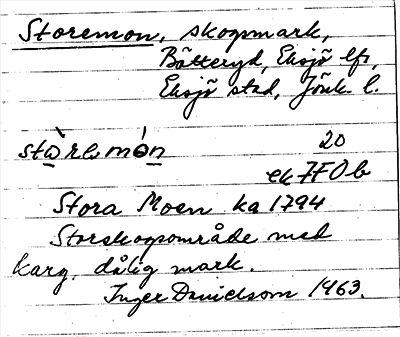 Storemon, skogsmark,
Bätteryd, Eksjö lfs,
Eksjö stad, Jönk. l.
stòrεmón 20
ek 7F0b
Stora Moen ka 1794
Storskogsområde med
karg, dålig mark.
Inger Danielsson 1963.